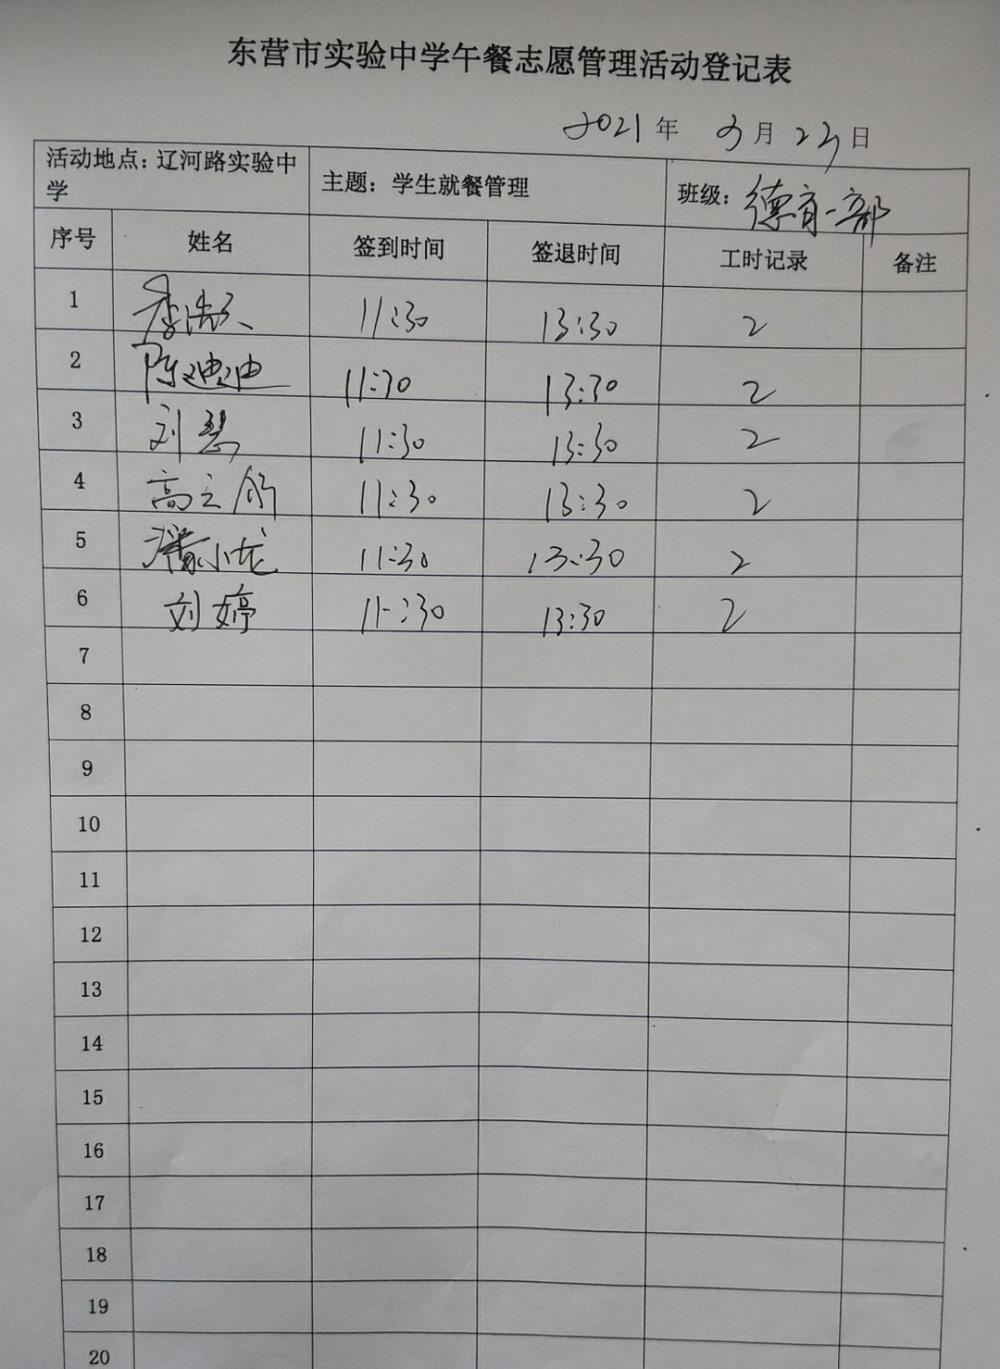 东营市实验中学午餐志愿管理活动登记表
2021年 3月 23日
活动地点：辽河路实验中学 主题：学生就餐管理 班级：德育一部
序号 姓名 签到时间 签退时间 工时记录 备注
1 11:30 13:30 2
2 陈迪迪 11:30 13:30 2
3 刘慧 11:30 13:30 2
4 高立 11:30 13:30 2
5 潘小龙 11:30 13:30 2
6 刘婷 11:30 13:30 2
7
8
9
10
11
12
13
14
15
16
17
18
19
20